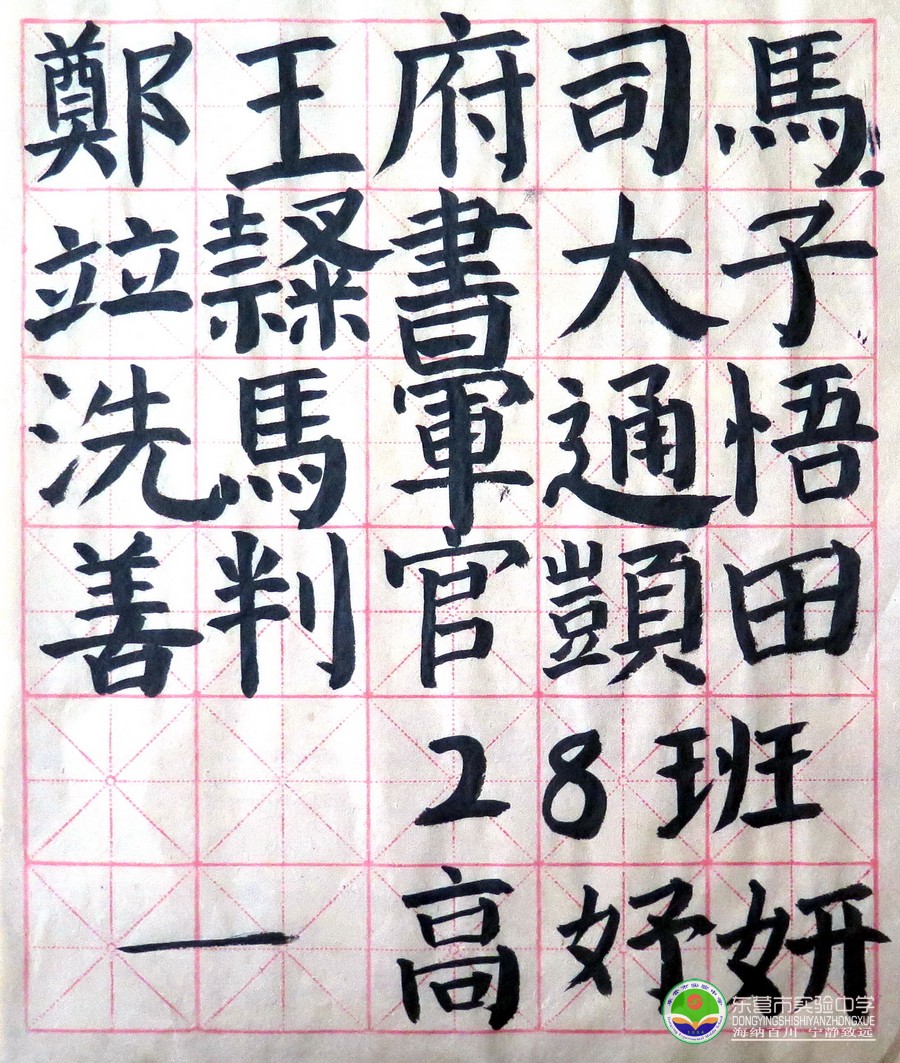 鄭王府司馬
竝隸書大子
洗馬軍通悟
善判官顗田
28班
一 高妤妍
东营市实验中学
DONGYINGSHISHIYANZHONGXUE
海纳百川 宁静致远